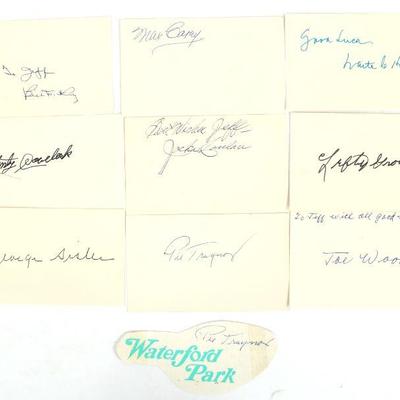 To Jeff
Max Carey
Good Luck
Waite
Best Wishes Jeff
Lefty Gro
George Sisler
Pie Traynor
To Jeff with all good
Joe Woo
Pie Traynor
Waterford
Park